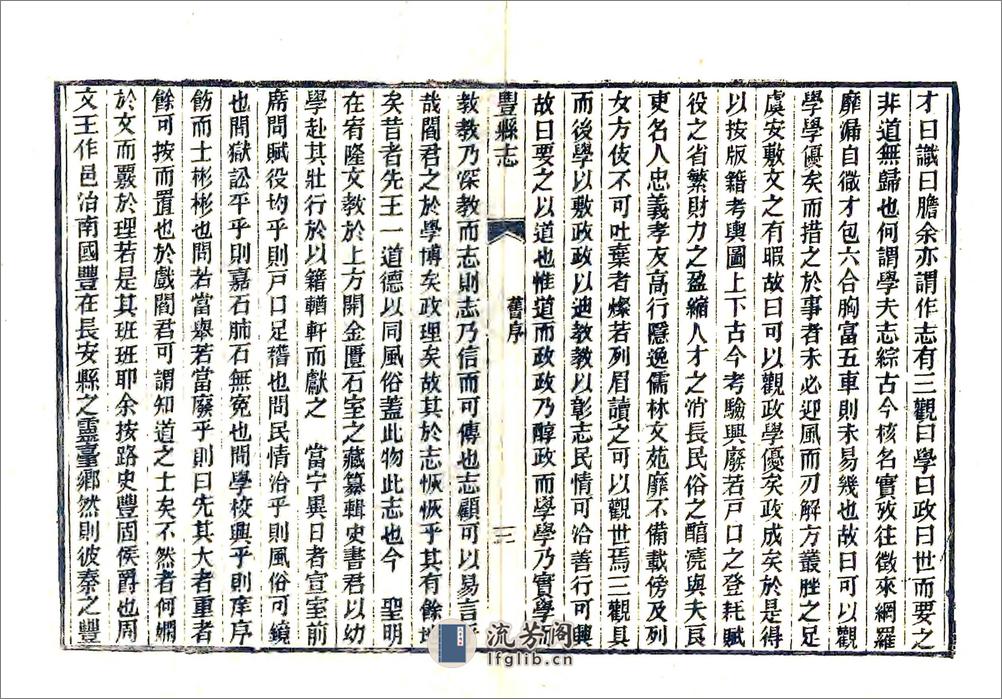 才曰識曰膽余亦謂作志有三觀曰學曰政曰世而要之
非道無歸也何謂學夫志綜古今核名實攷往徵來網羅
靡漏自徵才包六合胸富五車則未易幾也故曰可以觀
學學優矣而措之於事者未必迎風而刃解方叢脞之足
虞安敷文之有暇故曰可以觀政學優矣政成矣於是得
以按版籍考輿圖上下古今考驗興廢若戸口之登耗賦
役之省繁財力之盈縮人才之消長民俗之醕澆與夫良
吏名人忠義孝友高行隱逸儒林文苑靡不備載傍及列
女方伎不可吐棄者燦若列眉讀之可以觀世焉三觀具
而後學以敷政政以迪教教以彰志民情可洽善行可興
故曰要之以道也惟道而政政乃醇政而學學乃實學而
豐縣志
舊序
三
教教乃深教而志則志乃信而可傳也志顧可以易言
哉閻君之於學博矣政理矣故其於志恢恢乎其有餘地
矣昔者先王一道德以同風俗蓋此物此志也今 聖明
在宥隆文教於上方開金匱石室之藏纂輯史書君以幼
學赴其壯行於以籍輶軒而獻之 當宁異日者宣室前
席問賦役均乎則戸口足稽也問民情治乎則風俗可鏡
也問獄訟平乎則嘉石肺石無冤也問學校興乎則庠序
飭而士彬彬也問若當舉若當廢乎則曰先其大者重者
餘可按而置也於戲閻君可謂知道之士矣不然者何嫻
於文而覈於理若是其班班耶余按路史豐固侯爵也周
文王作邑治南國豐在長安縣之靈臺鄉然則彼秦之豐
流芳閣
lfglib.cn